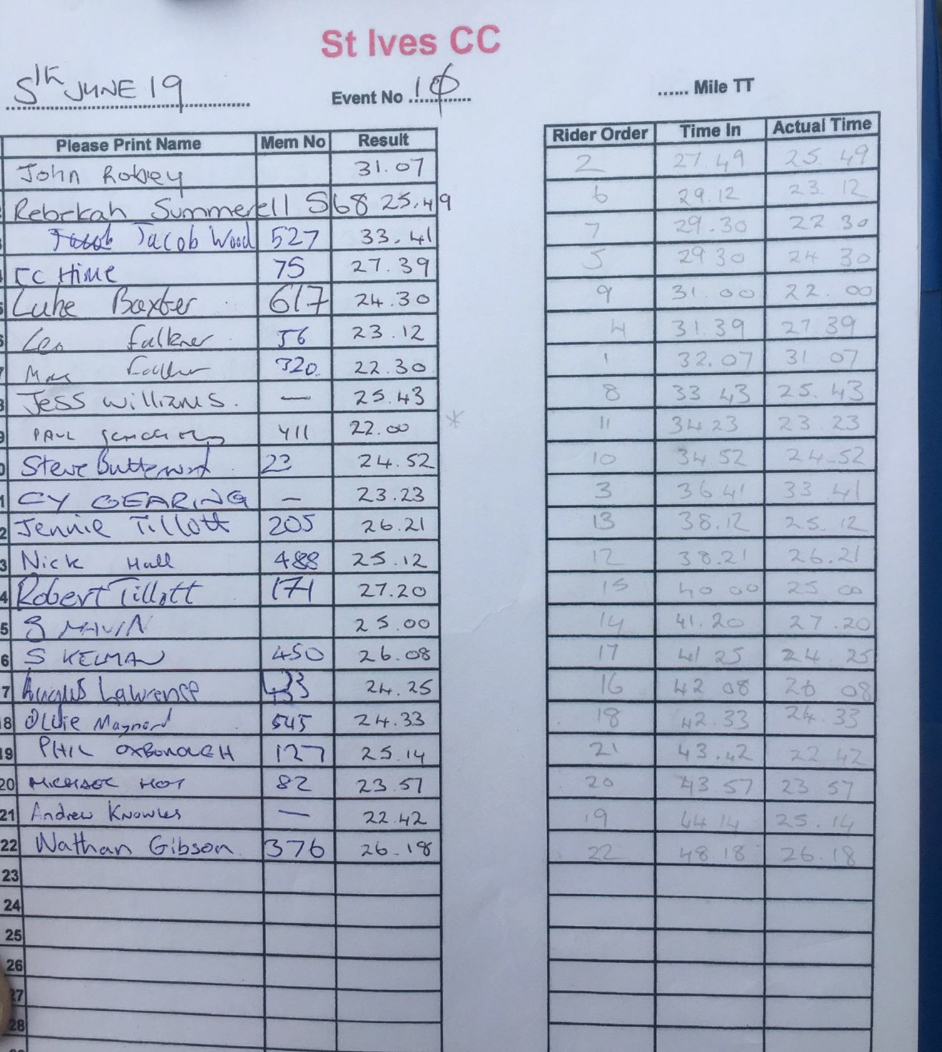 St Ives CC
5th JUNE 19 Event No 10 ...... Mile TT
Please Print Name Mem No Result Rider Order Time In Actual Time
John Robey 31.07 2 27.49 25.49
Rebekah Summerell 568 25.49 6 29.12 23.12
3 Jacob Wood 527 33.41 7 29.30 22.30
Hime 75 27.39 5 29 30 24 30
5 Luke Baxter 617 24.30 9 31.00 22.00
6 Leo Faulkner 56 23.12 4 31.39 27.39
7 Faulkner 320 22.30 1 32.07 31 07
8 Jess Williams. — 25.43 8 33 43 25.43
9 PAUL 411 22.00 * 11 34 23 23.23
0 Steve 23 24.52 10 34 52 24.52
1 CY GEARING — 23.23 3 36.41 33 41
2 Jennie Tillott 205 26.21 13 38.12 25.12
3 Nick Hall 488 25.12 12 38.21 26.21
4 Robert Tillott 171 27.20 15 40 00 25 00
5 S MAVIN 25.00 14 41.20 27.20
6 S KELMAN 450 26.08 17 41 25 24 25
7 Lawrence 433 24.25 16 42 08 26 08
18 Ollie Maynard 545 24.33 18 42.33 24.33
19 PHIL OXBOROUGH 127 25.14 21 43.42 22 42
20 82 23.57 20 43 57 23 57
21 Andrew Knowles — 22.42 19 44 14 25.14
22 Nathan Gibson 376 26.18 22 48.18 26.18
23
24
25
26
27
28